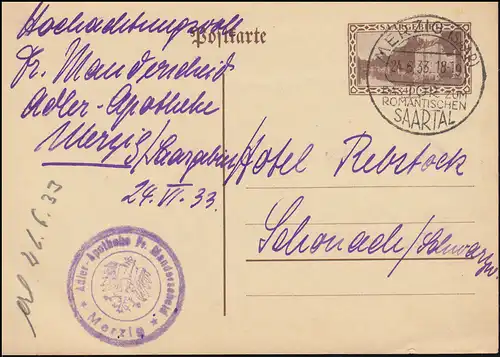 Hochachtungsvoll
Fr. Manderscheid
Adler-Apotheke
Merzig/Saargebiet
24. VI. 33.
Postkarte
SAARGEBIET
MERZIG (SAAR)
24.6.33.18-19
PFORTE ZUM
ROMANTISCHEN
SAARTAL
Hotel Rebstock
Schonach/Schwarzw.
26.6.33
Adler-Apotheke Fr. Manderscheid
* Merzig *